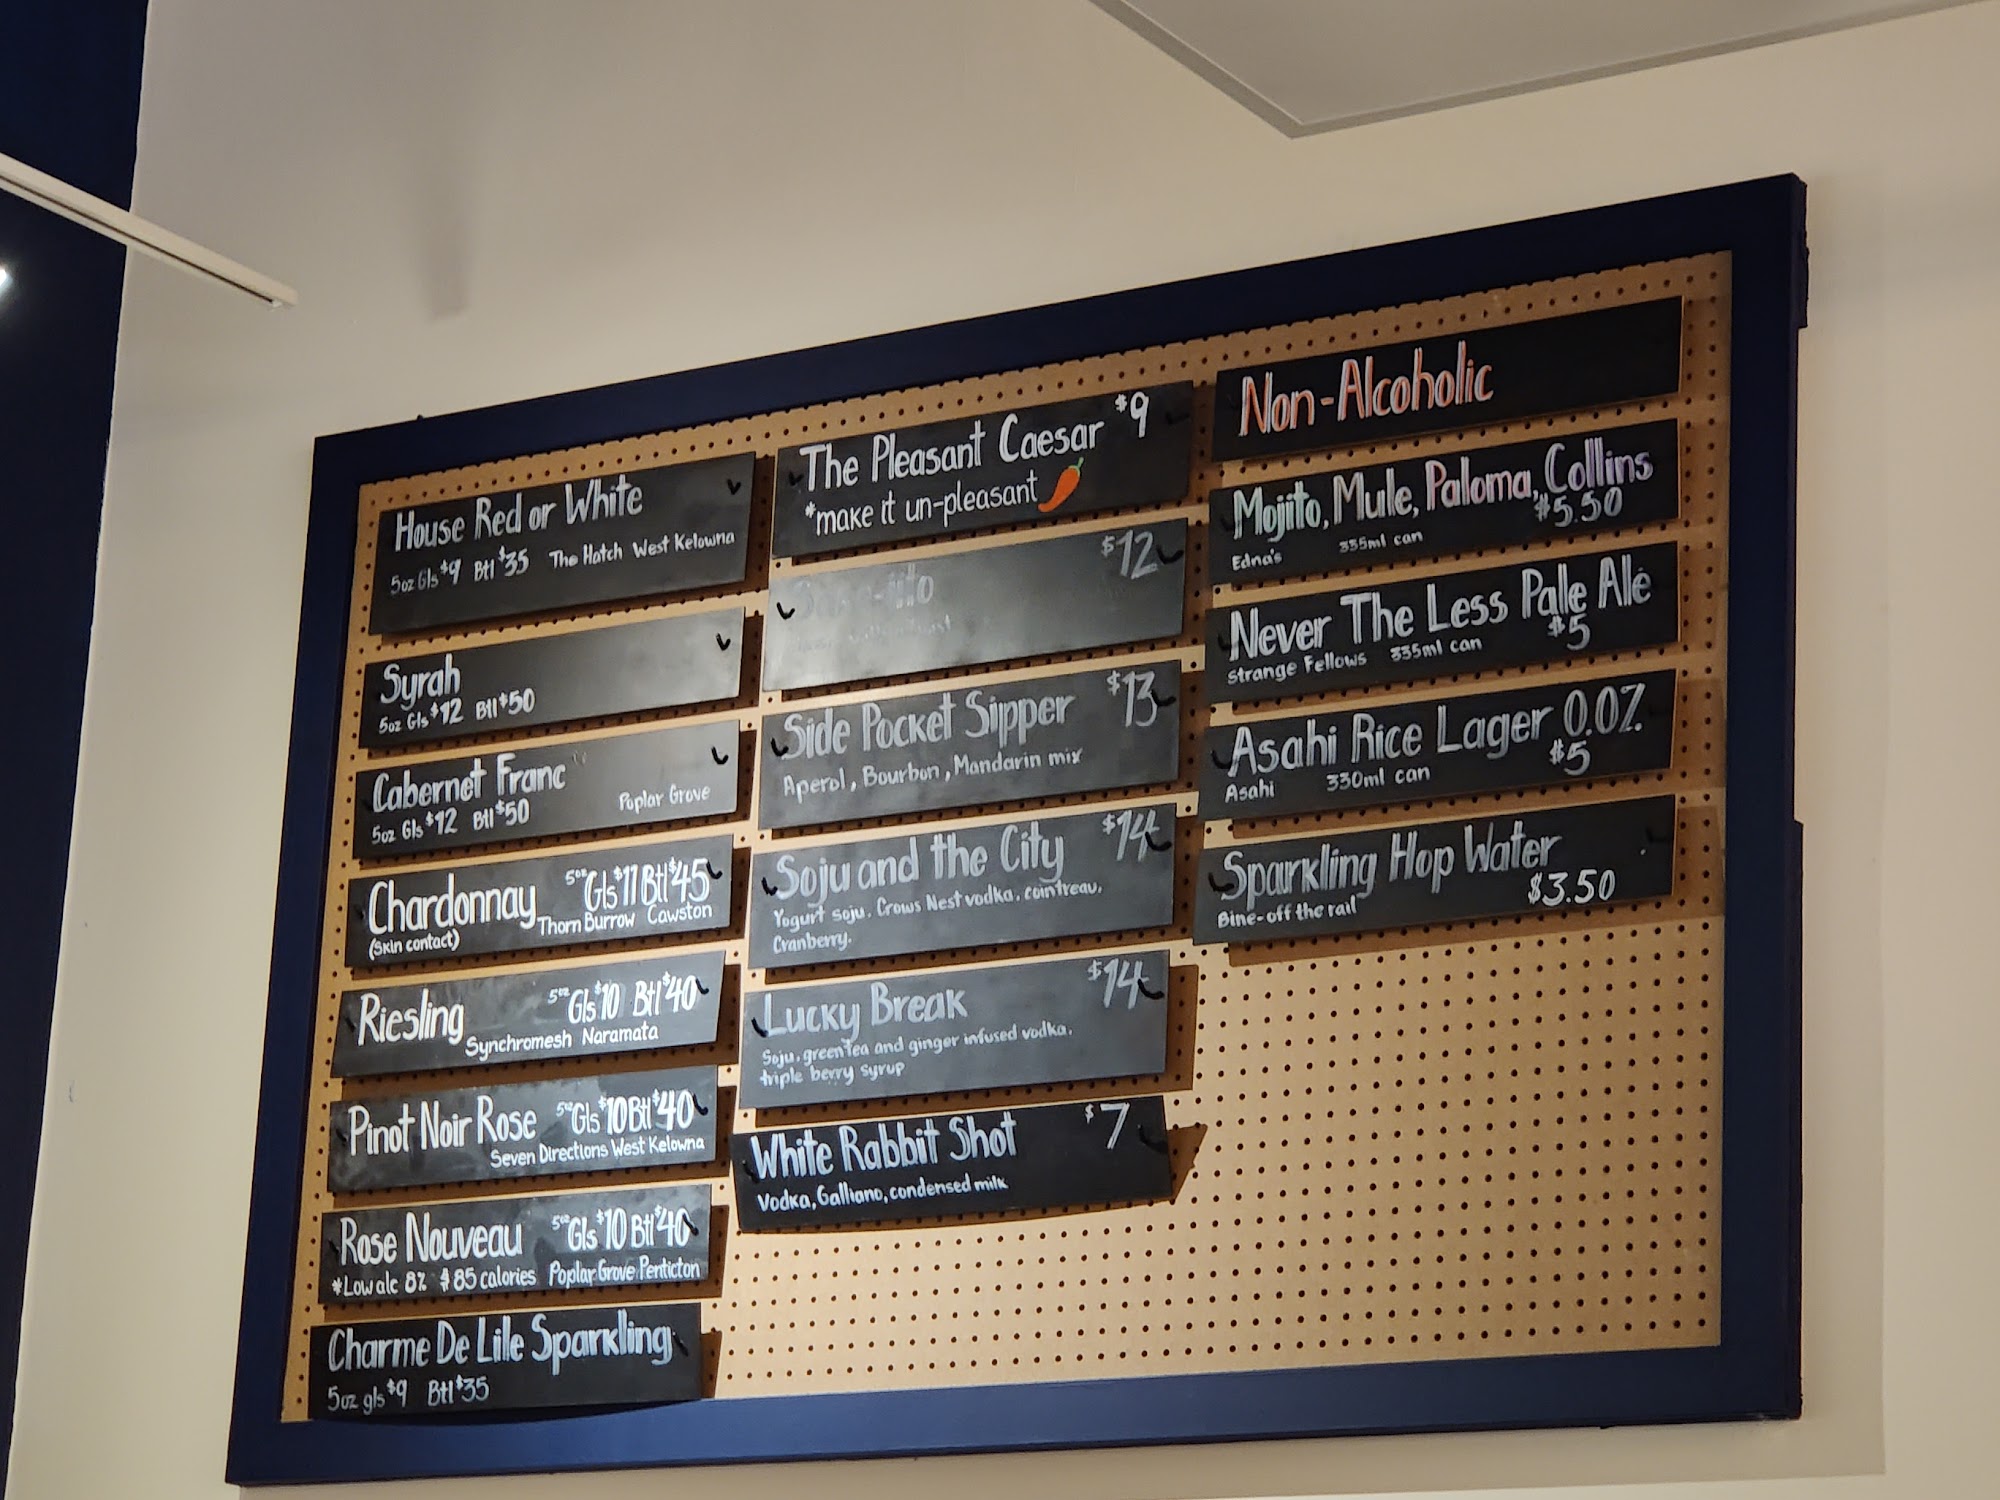 House Red or White
5oz Gls $9 Btl $35 The Hatch West Kelowna
Syrah
5oz Gls $12 Btl $50
Cabernet Franc
5oz Gls $12 Btl $50 Poplar Grove
Chardonnay 5oz Gls $11 Btl $45
(skin contact) Thorn Burrow Cawston
Riesling 5oz Gls $10 Btl $40
Synchromesh Naramata
Pinot Noir Rose 5oz Gls $10 Btl $40
Seven Directions West Kelowna
Rose Nouveau 5oz Gls $10 Btl $40
*Low alc 8% & 85 calories Poplar Grove Penticton
Charme De Lille Sparkling
5oz gls $9 Btl $35
The Pleasant Caesar $9
*make it un-pleasant
$12
Side Pocket Sipper $13
Aperol, Bourbon, Mandarin mix
Soju and the City $14
Yogurt soju, Crows Nest vodka, cointreau,
Cranberry.
Lucky Break $14
Soju, green tea and ginger infused vodka,
triple berry syrup
White Rabbit Shot $7
Vodka, Galliano, condensed milk
Non-Alcoholic
Mojito, Mule, Paloma, Collins
Edna's 335ml can $5.50
Never The Less Pale Ale
Strange Fellows 335ml can $5
Asahi Rice Lager 0.0%
Asahi 330ml can $5
Sparkling Hop Water
Bine-off the rail $3.50